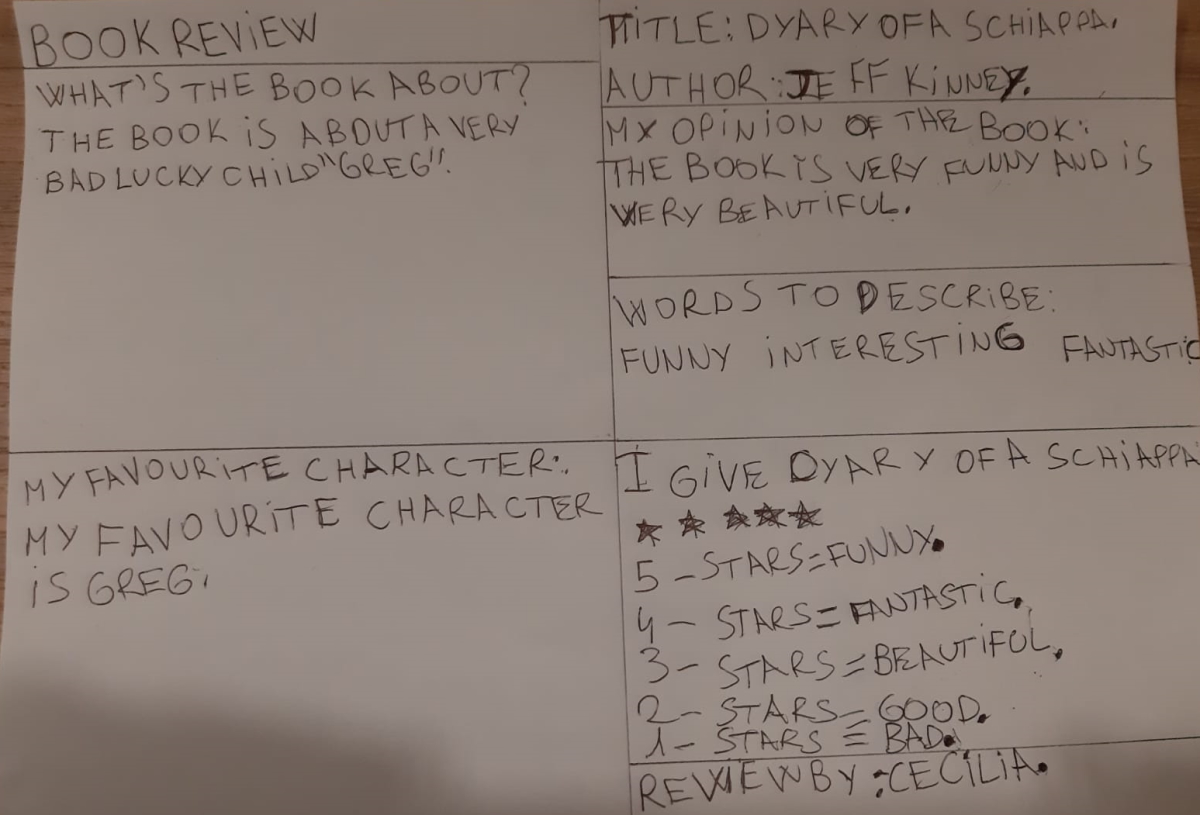 BOOK REVIEW
WHAT'S THE BOOK ABOUT?
THE BOOK IS ABOUT A VERY
BAD LUCKY CHILD "GREG".
MY FAVOURITE CHARACTER:.
MY FAVOURITE CHARACTER
IS GREG.
TITLE: DYARY OF A SCHIAPPA.
AUTHOR: JEFF KINNEY.
MY OPINION OF THE BOOK:
THE BOOK IS VERY FUNNY AND IS
VERY BEAUTIFUL.
WORDS TO DESCRIBE:
FUNNY INTERESTING FANTASTIC
I GIVE DYARY OF A SCHIAPPA
★ ★ ★★★
5 - STARS = FUNNY.
4 - STARS = FANTASTIC.
3 - STARS = BEAUTIFUL.
2 - STARS = GOOD.
1 - STARS = BAD.
REVIEW BY : CECILIA.